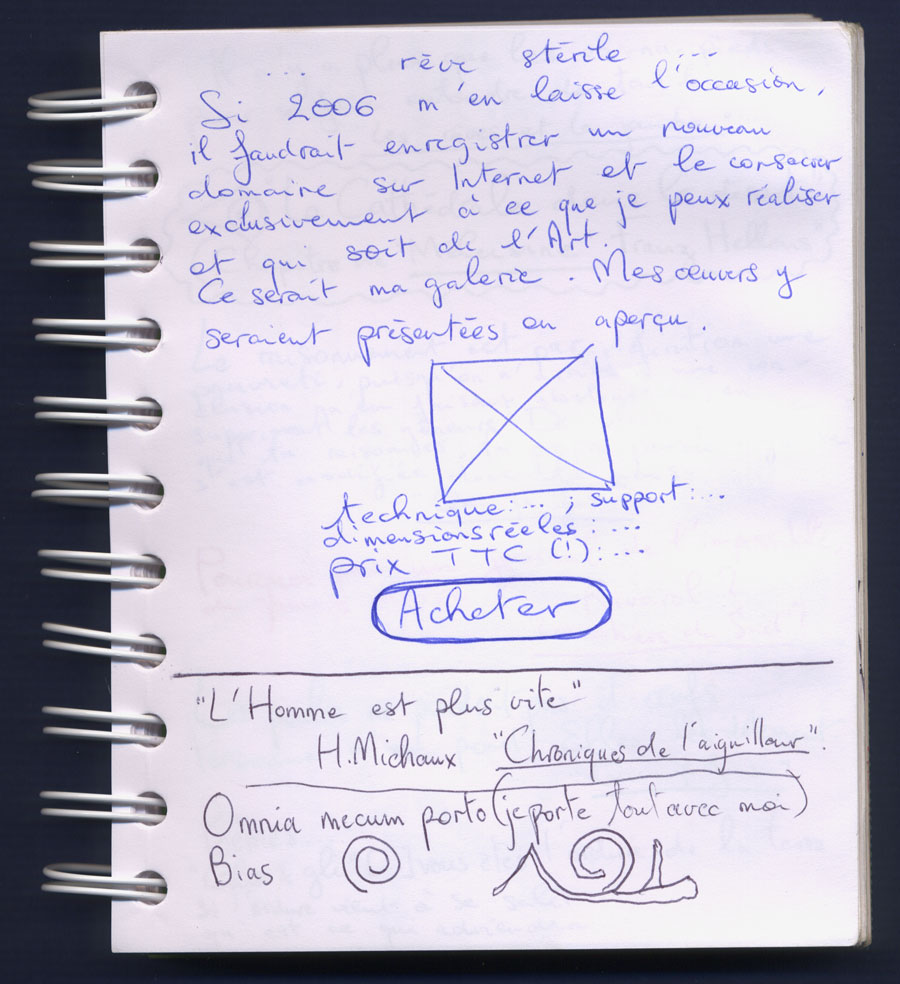 ... rêve stérile ...
Si 2006 m'en laisse l'occasion,
il faudrait enregistrer un nouveau
domaine sur Internet et le consacrer
exclusivement à ce que je peux réaliser
et qui soit de l'Art.
Ce serait ma galerie. Mes œuvers y
seraient présentées en aperçu.
technique: ... ; support: ...
dimensions réeles : ...
prix TTC (!): ...
Acheter
"L'Homme est plus vite"
H. Michaux "Chroniques de l'aiguilleur".
Omnia mecum porto (je porte tout avec moi)
Bias